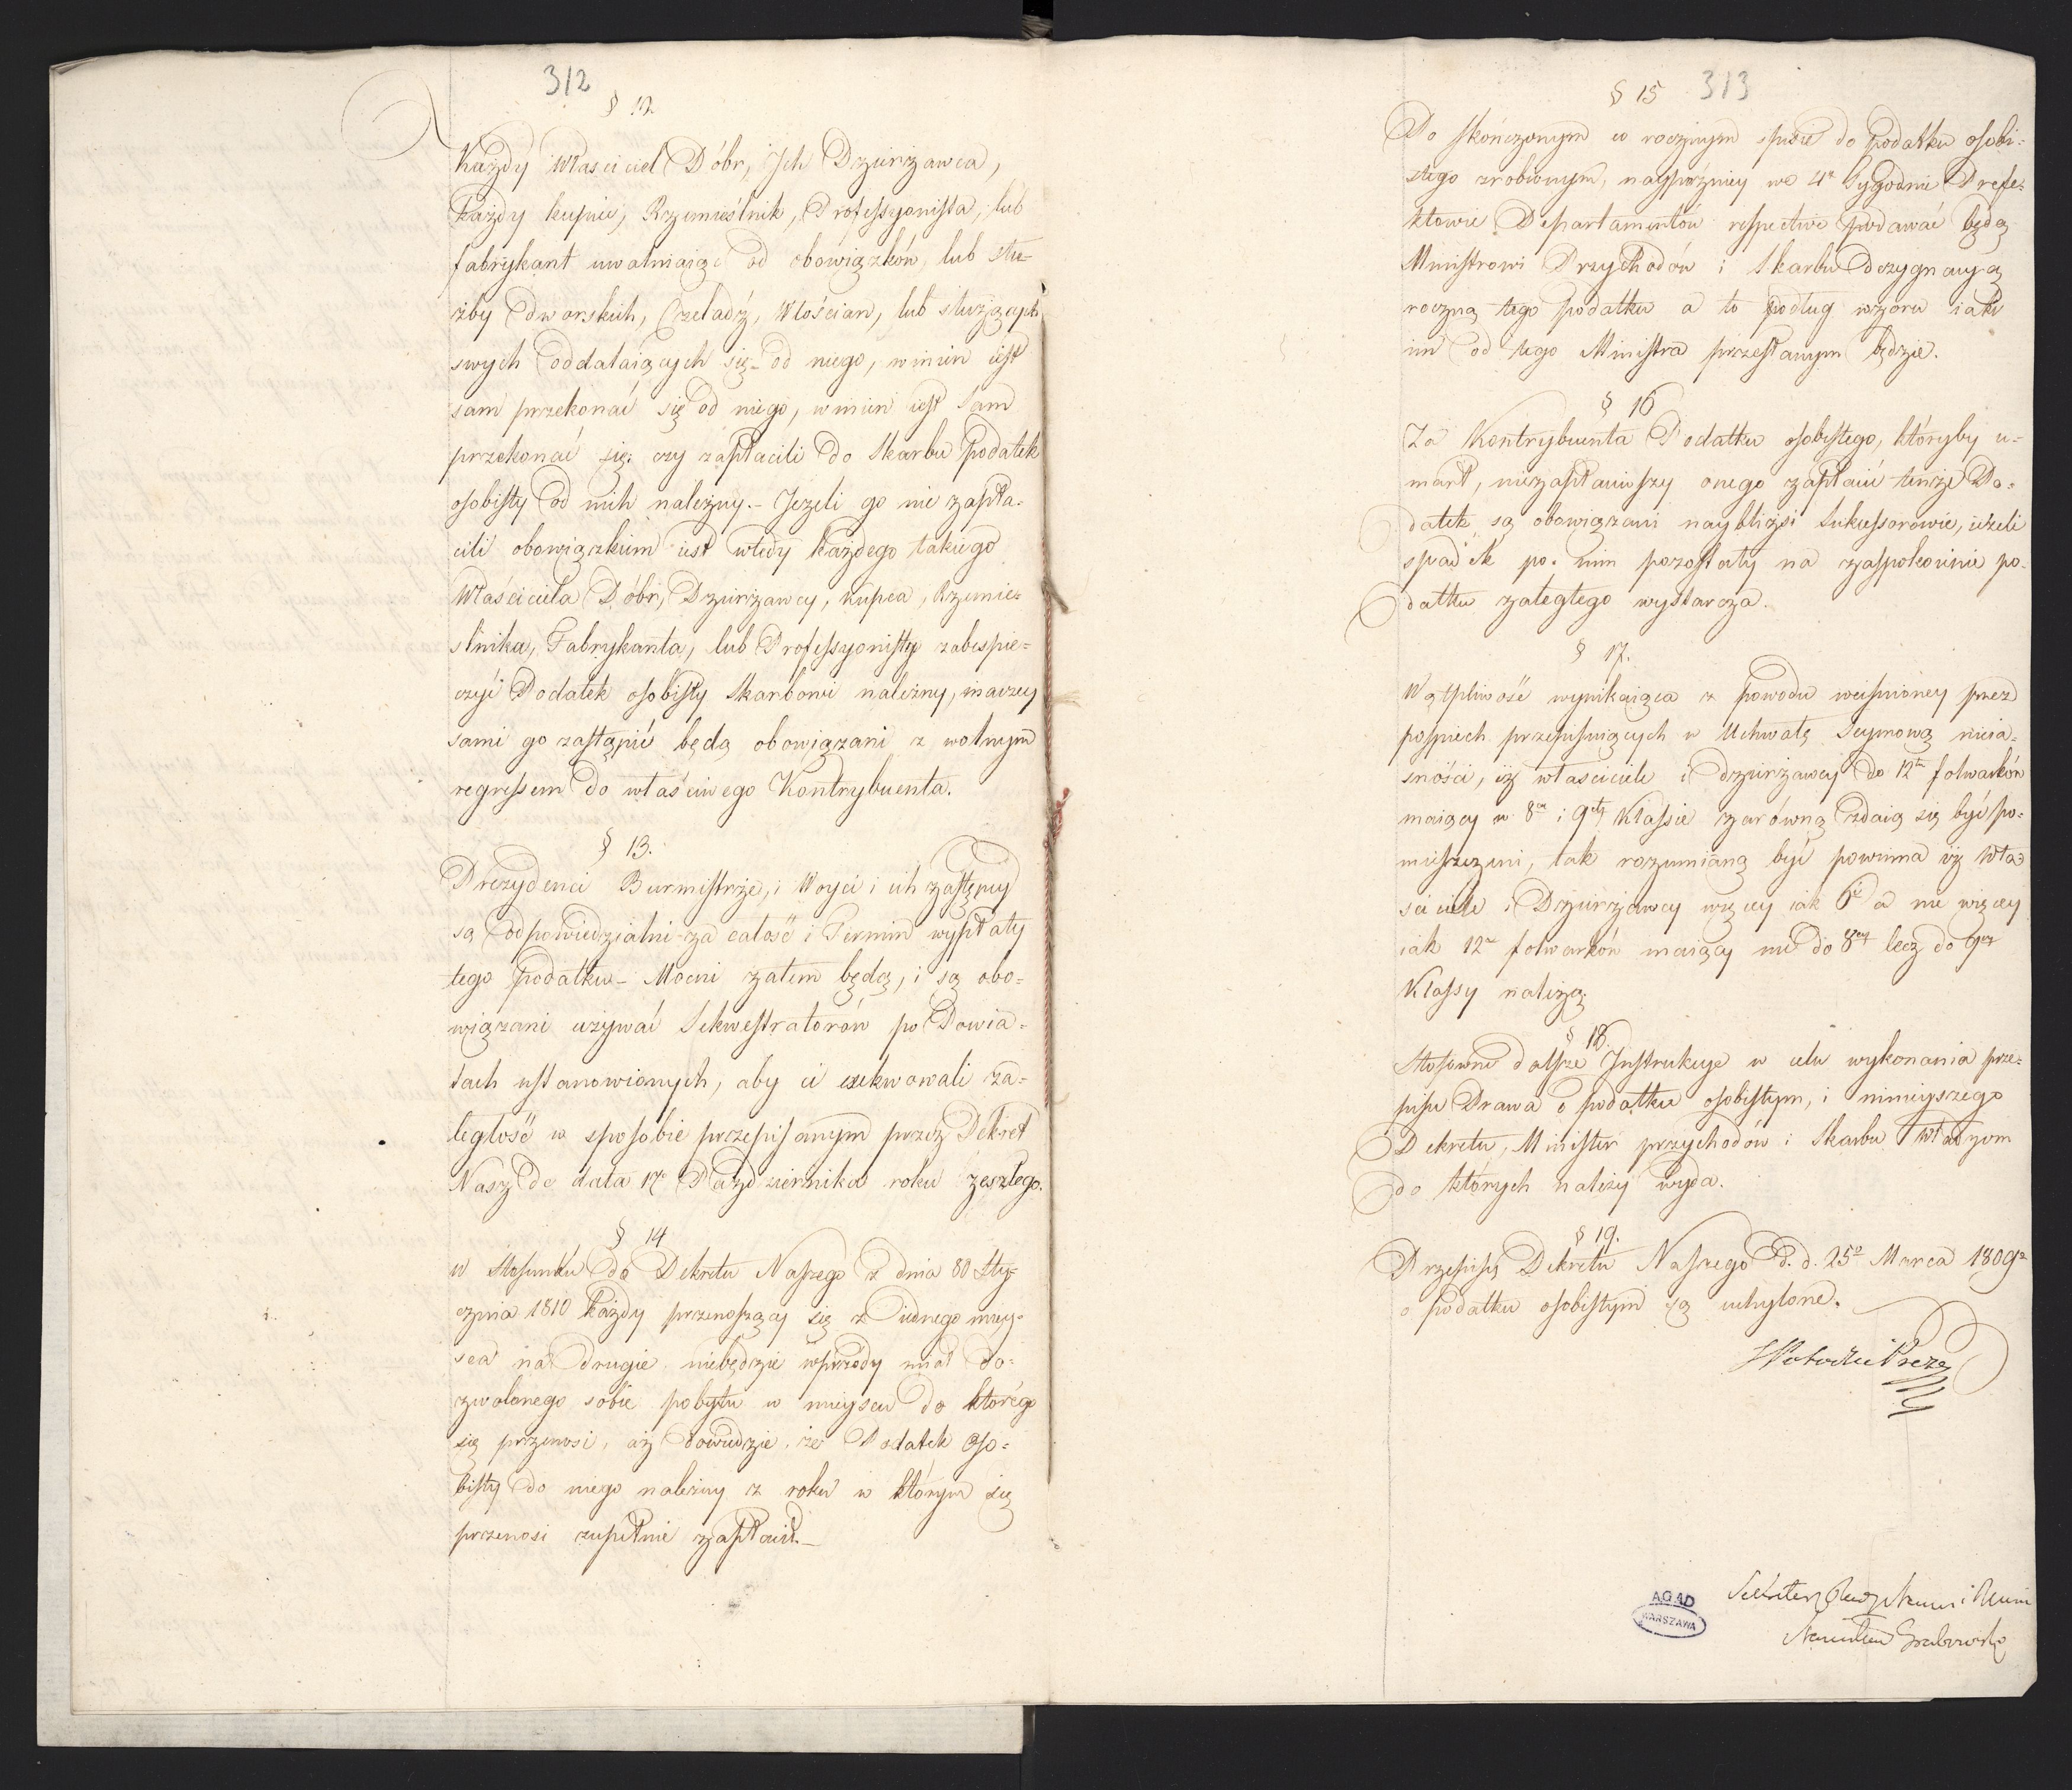 312
§ 12
Każdy Właściciel Dóbr, Ich Dzierżawca,
każdy kupiec, Rzemieślnik, Professyonista, lub
fabrykant uwalniaiąc od obowiązków, lub słu-
żby dworskich, Czeladź, Włościan, lub służących
swych oddalaiących się od niego, winien iest
sam przekonać się od niego, winien iest sam
przekonać się, czy zapłacili do Skarbu Podatek
osobisty od nich należny. – Jeżeli go nie zapła-
cili obowiązkiem iest wtedy każdego takiego
Właściciela Dóbr, Dzierżawcy, kupca, Rzemie-
ślnika, Fabrykanta, lub Professyonisty zabespie-
czyć Podatek osobisty Skarbowi należny, inaczey
sami go zastąpić będą obowiązani z wolnym
regressem do właściwego Kontrybuenta.
§ 13.
Prezydenci Burmistrze, i Woyci i ich zastępcy
są odpowiedzialni za całość i Termin wypłaty
tego podatku – Mocni zatem będą, i są obo-
wiązani używać Sekwestratorów po Powia-
tach ustanowionych, aby ci exekwowali za-
ległość w sposobie przepisanym przez Dekret
Nasz de data 17° Października roku zeszłego.
§ 14
W Stosunku do Dekretu Naszego z dnia 30 Sty-
cznia 1810 każdy przenoszący się z iednego miey-
sca na drugie niebędzie wprzódy miał do-
zwolonego sobie pobytu w mieyscu do którego
się przenosi, aż dowiedzie, że Podatek oso-
bisty do niego należny z roku w którym się
przenosi zupełnie zapłacił. –
§ 15 313
Po skończonym co rocznym spisie do podatku osobi-
stego zrobionym, naypóźniey we 4r Tygodnie Prefe-
ktowie Departamentów respective podawać będą
Ministrowi Przychodów i Skarbu Dezygnacyą
roczną tego podatku a to podług wzoru iaki
im od tego Ministra przesłanym będzie.
§ 16
Za Kontrybuenta Podatku osobistego, któryby u-
marł, niezapłaciwszy onego zapłacić tenże Po-
datek są obowiązani naybliżsi Sukcessorowie, ieżeli
spadek po nim pozostały na zaspokoienie po-
datku zaległego wystarcza.
§ 17.
Wątpliwość wynikaiąca z powodu wcisnioney przez
pospiech przepisuiących w Uchwałę Seymową nieia-
sności, iż właściciele i dzierżawcy do 12tu folwarków
maiący w 8ey i 9tey Klassie zarówną zdaią się być po-
mieszczeni, tak rozumianą być powinna iż Wła-
ściciele i Dzierżawcy więcey iak 6ć a nie więcey
iak 12u folwarków maiący nie do 8ey lecz do 9ey
Klassy należą.
§ 18.
Stosowne dalsze Instrukcye w celu wykonania prze-
pisu Prawa o podatku osobistym, i ninieyszego
Dekretu, Minister przychodów i Skarbu Władzom
do których należy wyda.
§ 19.
Przepisy Dekretu Naszego d. d. 25° Marca 1809r
o podatku osobistym są uchylone.
Grabowski
AGAD
WARSZAWA